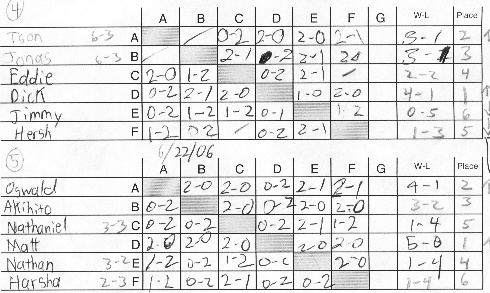 ④
A B C D E F G W-L Place
Tson 6-3 A / 0-2 2-0 2-0 2-1 3-1 2 ↑
Jonas 6-3 B / 2-1 0-2 2-1 2-0 3- 3
Eddie C 2-0 1-2 0-2 2-1 / 2-2 4
Dick D 0-2 2-1 2-0 1-0 2-0 4-1 1 ↑
Jimmy E 0-2 1-2 1-2 0-1 1-2 0-5 6
Hersh F 1-2 0-2 / 0-2 2-1 1-3 5
⑤ 6/22/06
A B C D E F G W-L Place
Oswald A 2-0 2-0 0-2 2-1 2-1 4-1 2 ↑
Akihito B 0-2 2-0 0-2 2-0 2-0 3-2 3
Nathaniel 3-3 C 0-2 0-2 0-2 2-1 1-2 1-4 5
Matt D 2-0 2-0 2-0 2-0 2-0 5-0 1 ↑
Nathan 3-2 E 1-2 0-2 1-2 0-2 2-0 1-4 4
Harsha 2-3 F 1-2 0-2 2-1 0-2 0-2 1-4 6